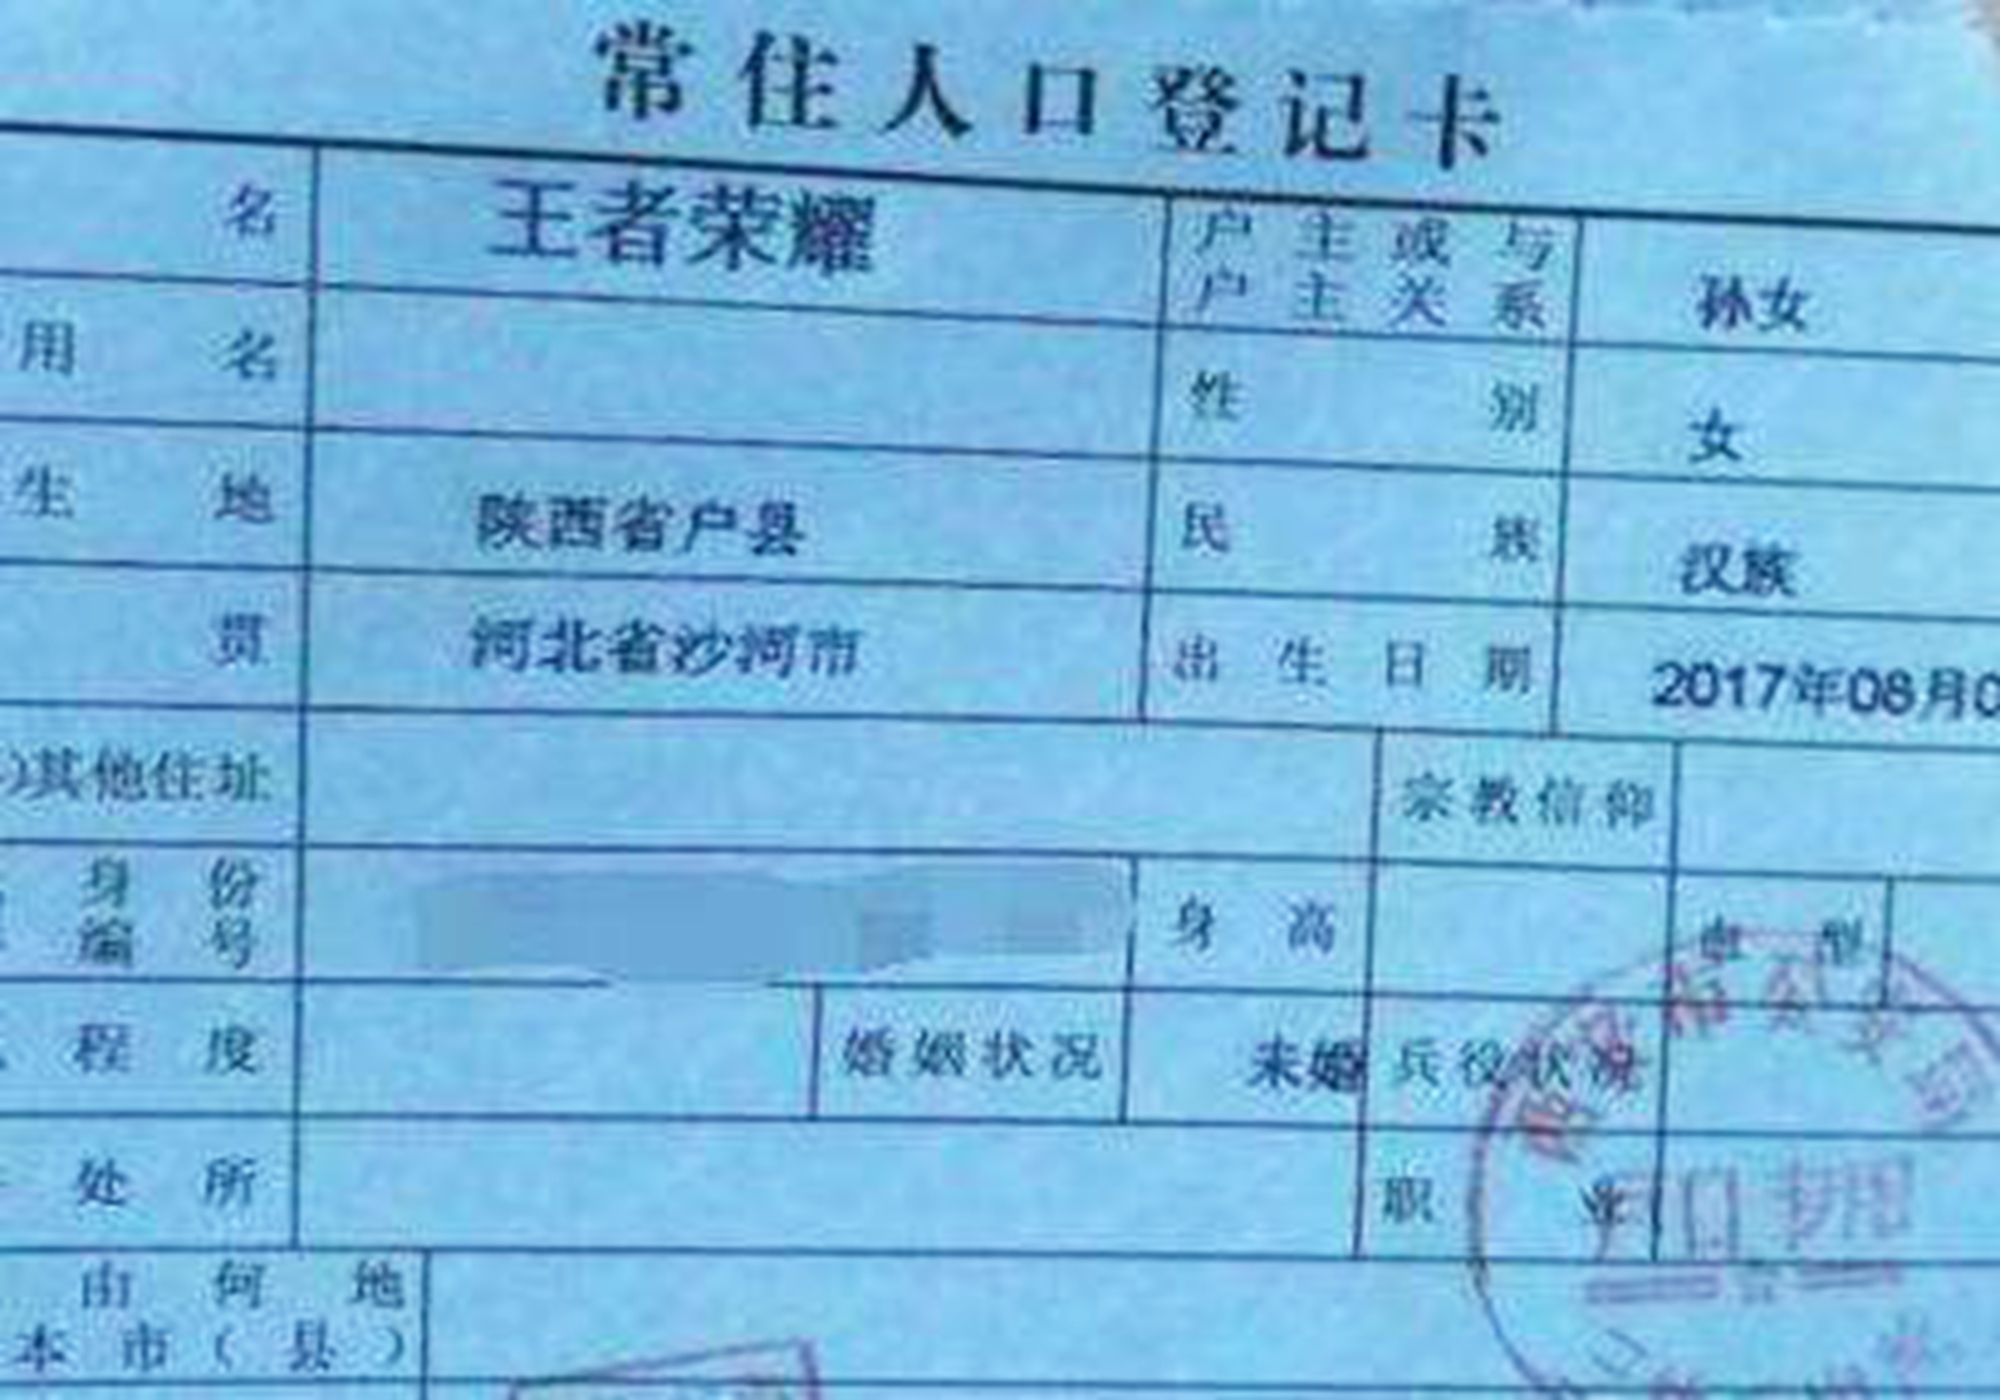 常住人口登记卡
名 王者荣耀 户主或与 孙女
户主关系
用名 性别 女
生地 陕西省户县 民族 汉族
贯 河北省沙河市 出生日期 2017年08月0
)其他住址 宗教信仰
身份 身高 血型
编号
程度 婚姻状况 未婚 兵役状况
处所 职业
由何地
本市(县)
户口专用